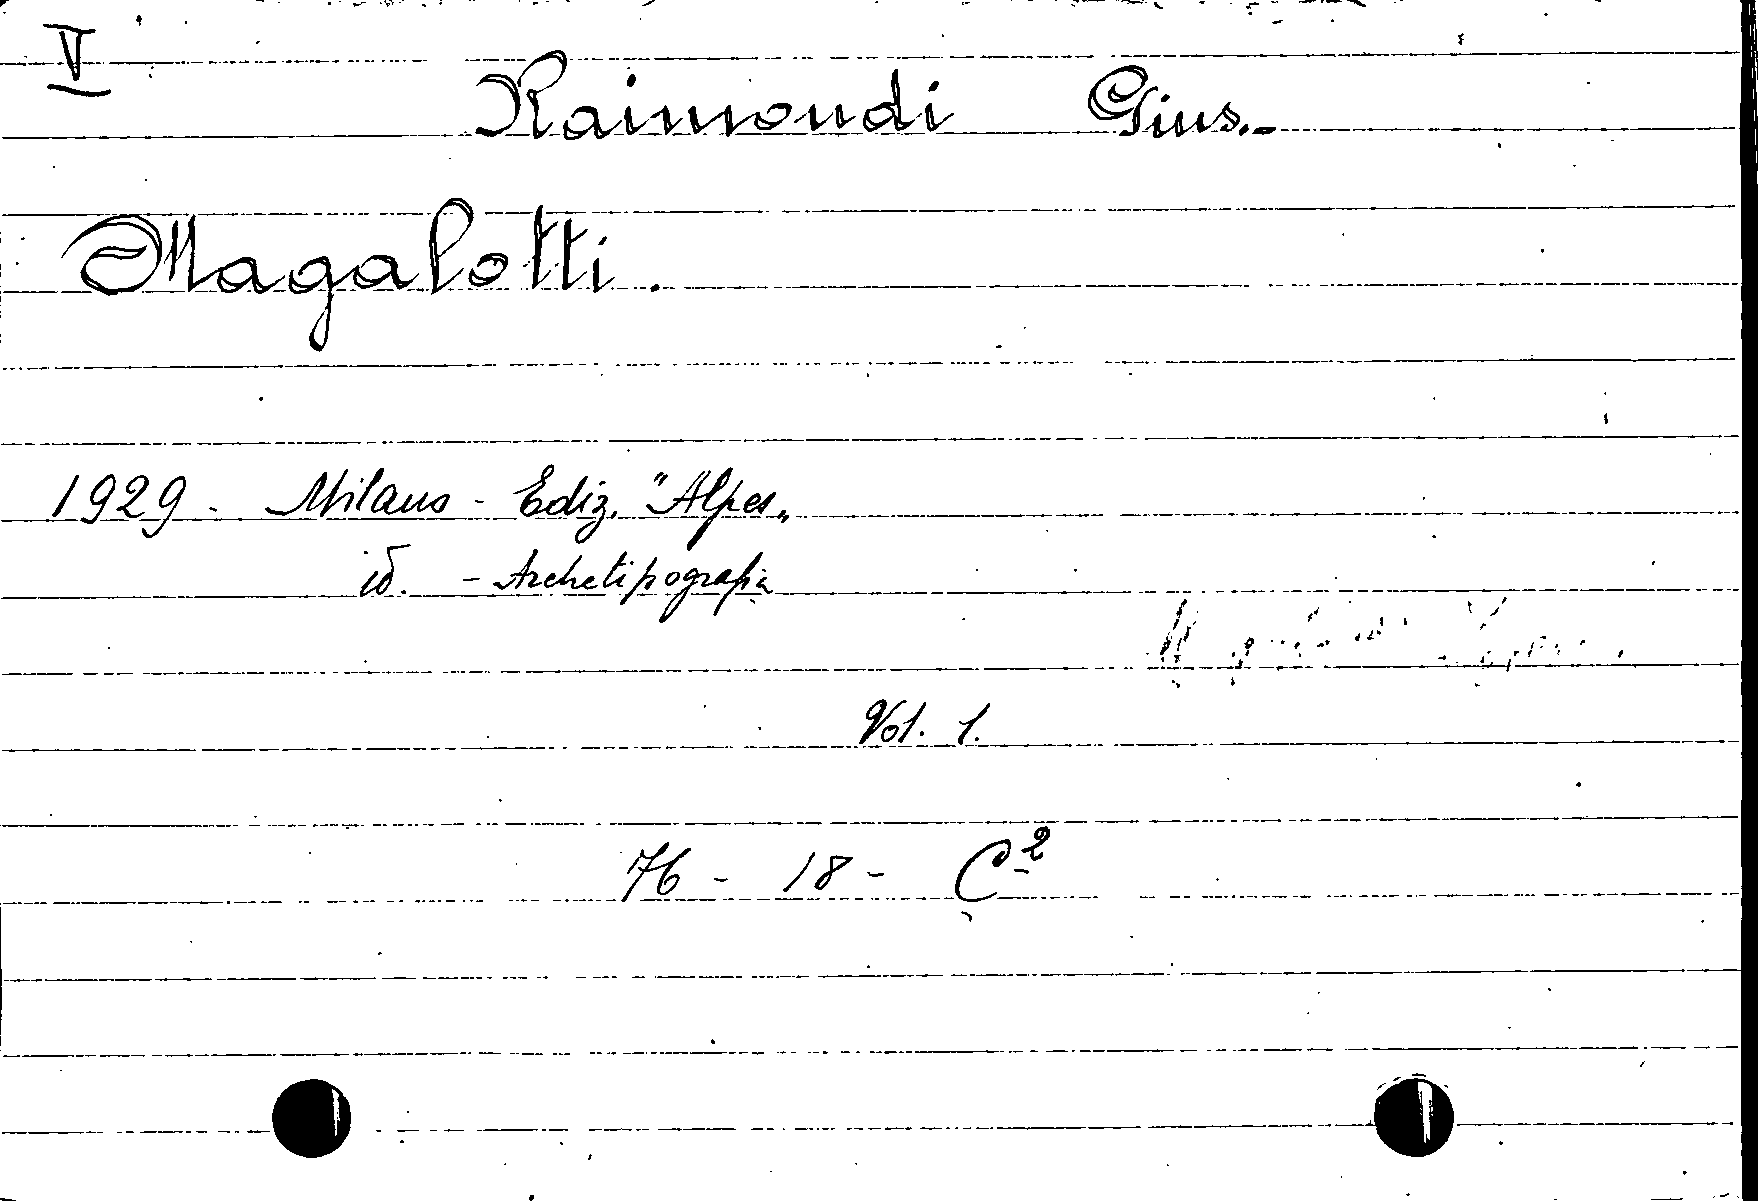 V
Raimondi Gius.-
Magalotti.
1929 - Milano - Ediz. "Alpes„
id. - Archetipografia
Vol. 1.
76 - 18 - C²